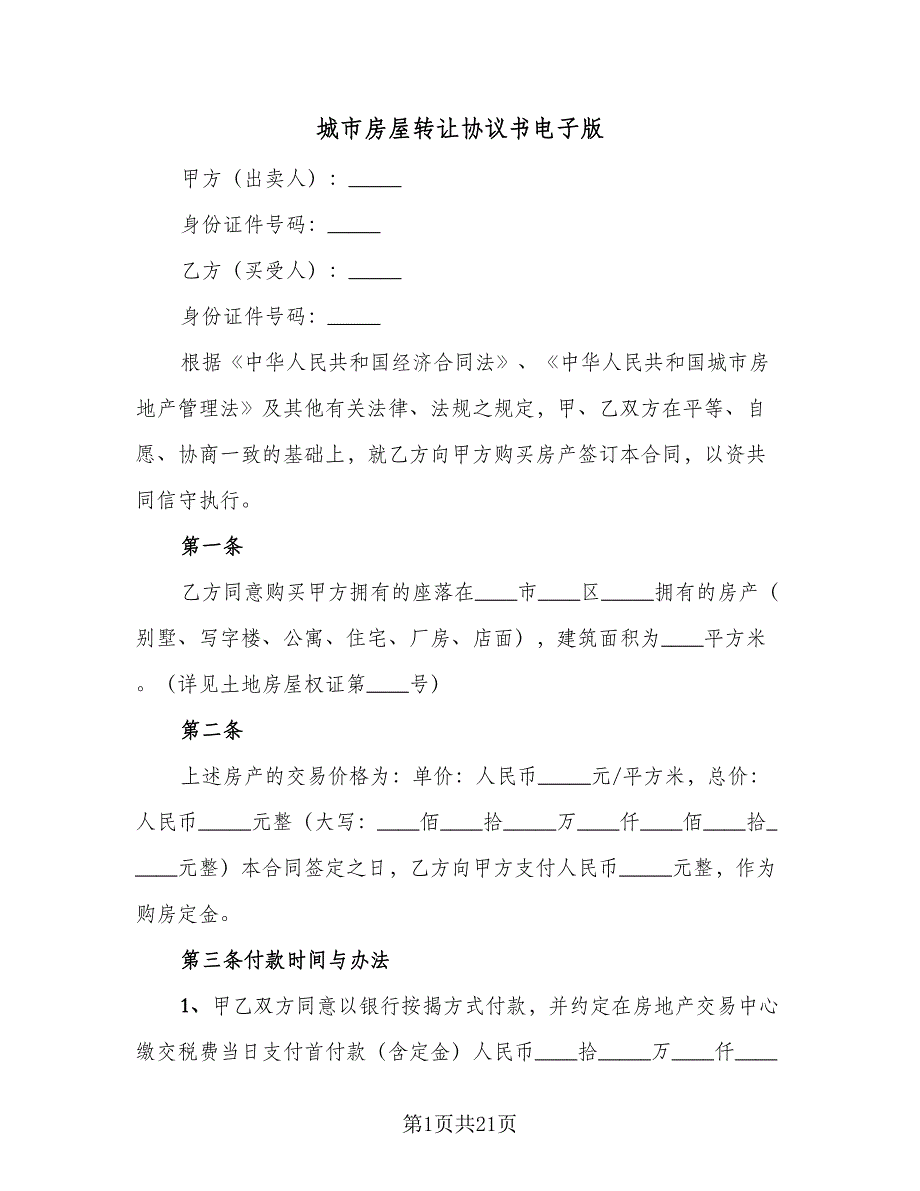 城市房屋转让协议书电子版
甲方（出卖人）：_____
身份证件号码：_____
乙方（买受人）：_____
身份证件号码：_____
根据《中华人民共和国经济合同法》、《中华人民共和国城市房
地产管理法》及其他有关法律、法规之规定，甲、乙双方在平等、自
愿、协商一致的基础上，就乙方向甲方购买房产签订本合同，以资共
同信守执行。
第一条
乙方同意购买甲方拥有的座落在____市____区_____拥有的房产（
别墅、写字楼、公寓、住宅、厂房、店面），建筑面积为____平方米
。（详见土地房屋权证第____号）
第二条
上述房产的交易价格为：单价：人民币_____元/平方米，总价：
人民币_____元整（大写：____佰____拾_____万____仟____佰____拾_
____元整）本合同签定之日，乙方向甲方支付人民币_____元整，作为
购房定金。
第三条付款时间与办法
1、甲乙双方同意以银行按揭方式付款，并约定在房地产交易中心
缴交税费当日支付首付款（含定金）人民币____拾_____万____仟____
第1页共21页